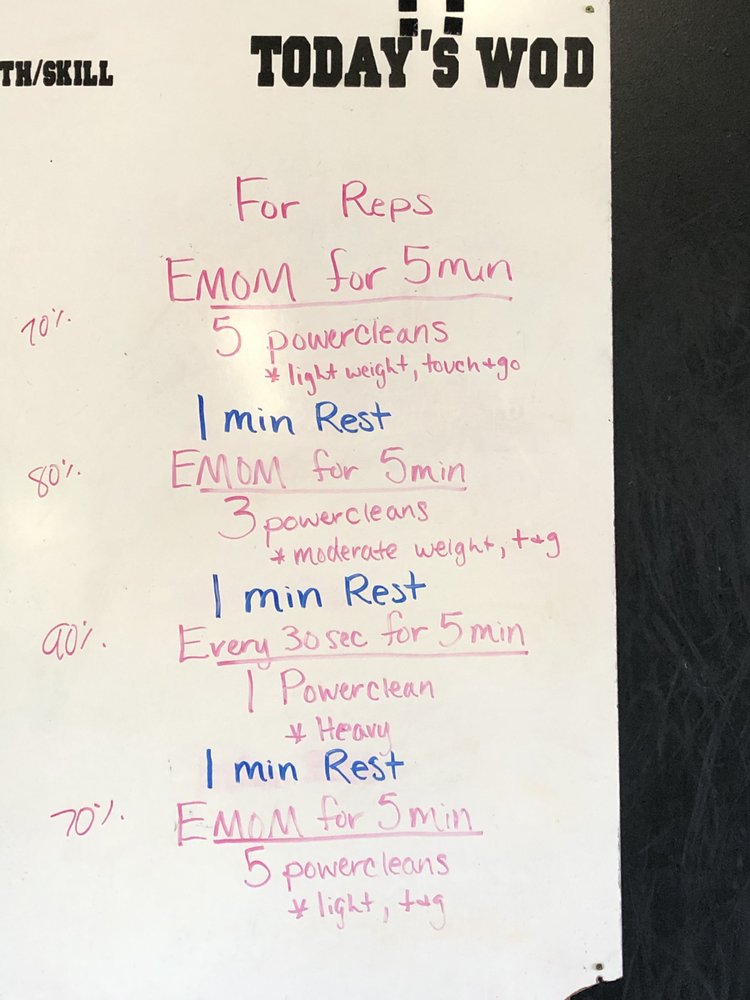 TH/SKILL
TODAY'S WOD
For Reps
EMOM for 5min
70%
5 powercleans
* light weight, touch+go
1 min Rest
80%
EMOM for 5min
3 powercleans
* moderate weight, t+g
1 min Rest
90%
Every 30sec for 5min
1 Powerclean
* Heavy
1 min Rest
70%
EMOM for 5min
5 powercleans
* light, t+g